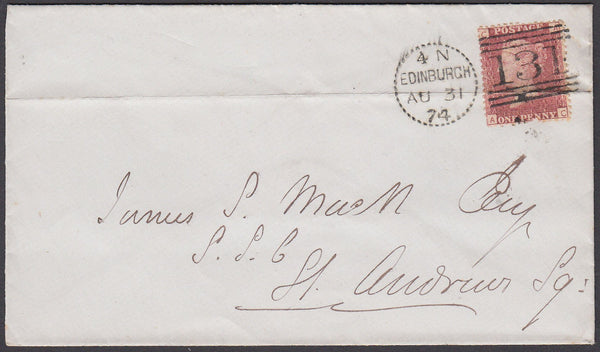 C POSTAGE
131
ONE PENNY
A C
4 N
EDINBURGH
AU 31
74
James S. Mack Esq
S. S. C
St. Andrew Sq: